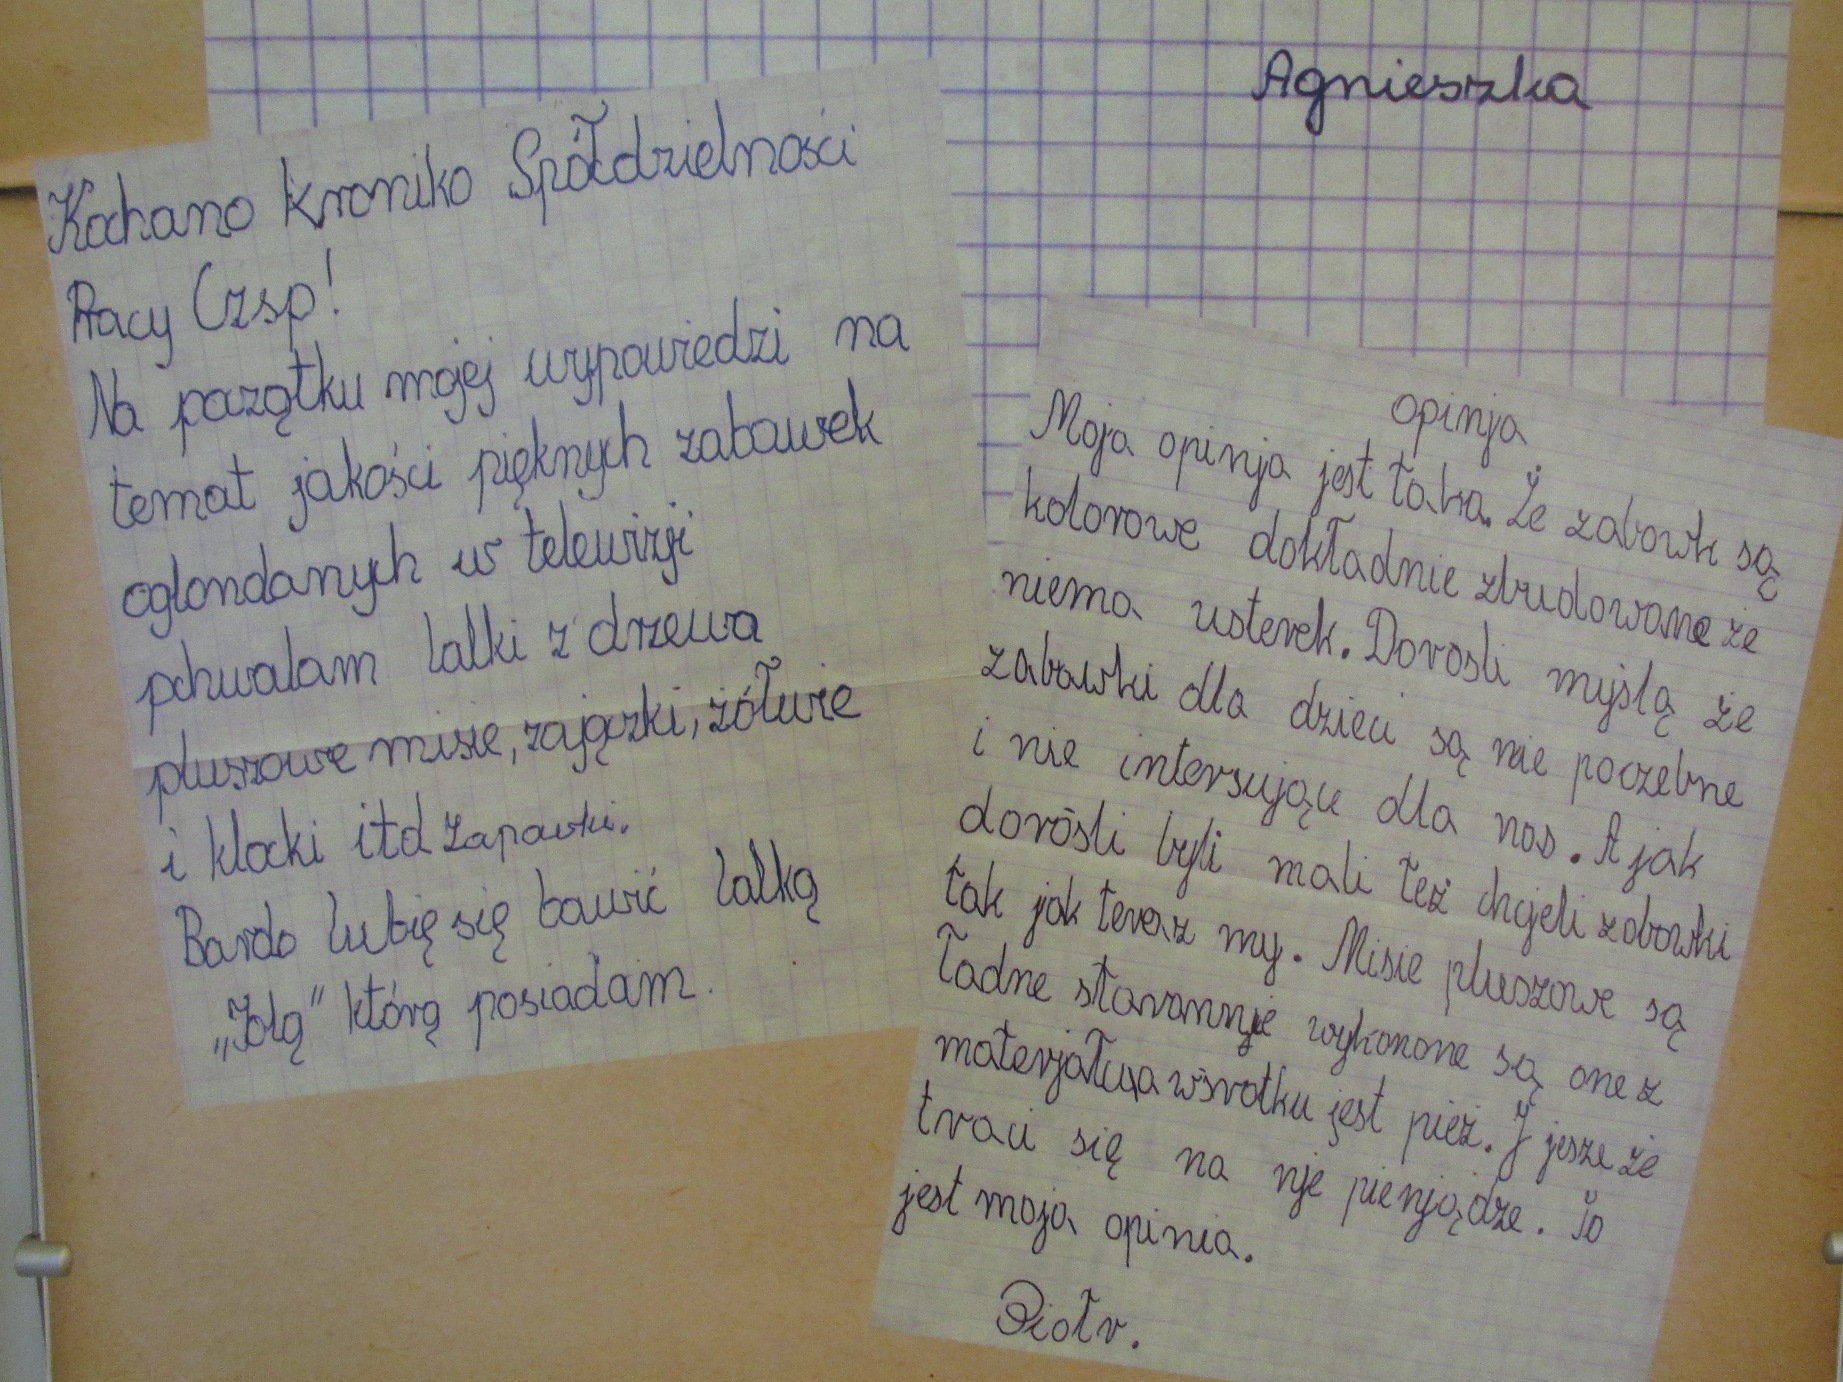 Agnieszka
Kochano kroniko Spółdzielności
Pracy Czsp!
Na pozątku mojej wypowiedzi na
temat jakości pięknych zabawek
oglondanych w telewizji
pchwalam lalki z drzewa
pluszowe misie, zajączki, żółwie
i klocki itd zapawki.
Bardo lubię się bawić lalką
„Jolą" którą posiadam.
opinja
Moja opinja jest taka. Że zabawk są
kolorowe dokładnie zbudowane że
niema usterek. Dorosli myslą że
zabawki dla dzieci są nie poczebne
i nie intersujące dla nas. A jak
dorośli byli mali też chcjeli zabawki
tak jak teraz my. Misie pluszowe są
ładne starannje wykonane są one z
materjału, a wśrotku jest pież. I jesze że
traci się na nje pienjądze. To
jest moja opinia.
Piotr.